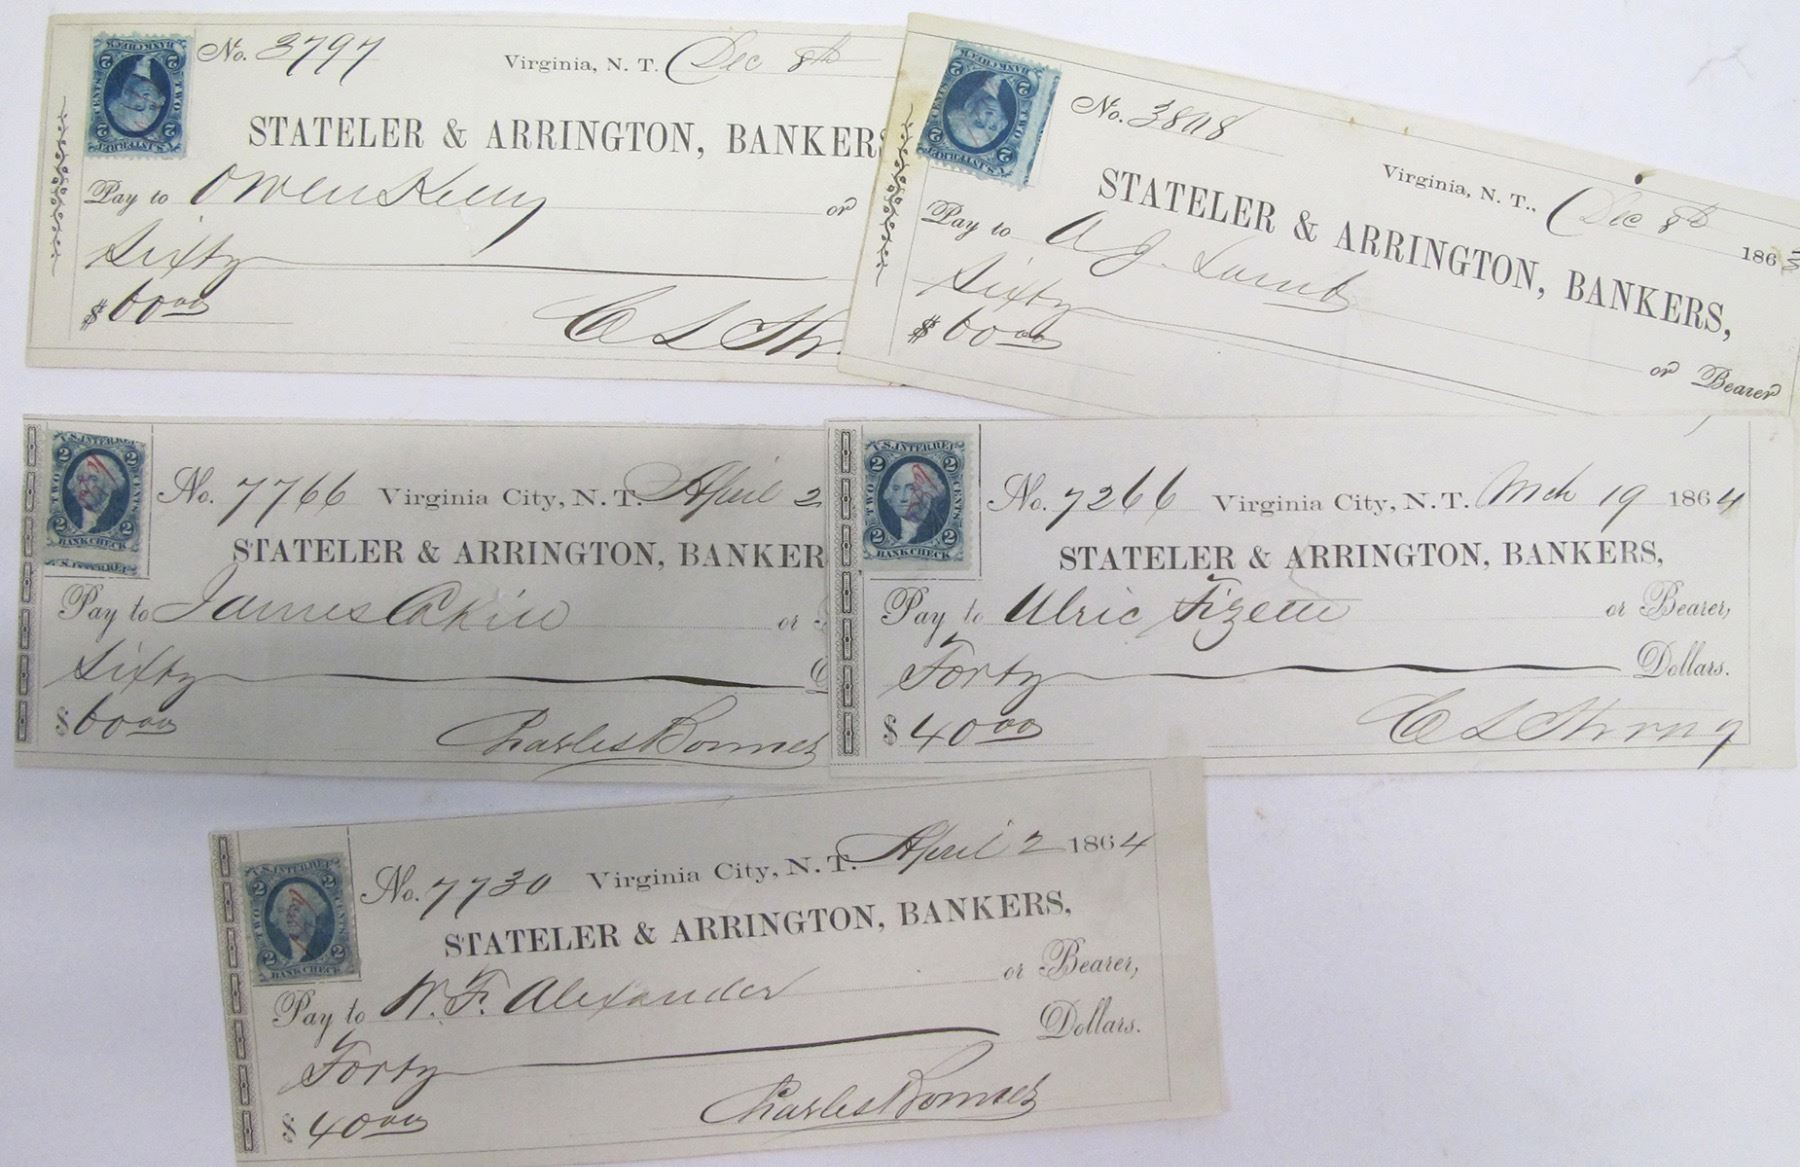 No. 3797 Virginia, N. T. Dec 8th
STATELER & ARRINGTON, BANKERS
Pay to Owen Kelly or
Sixty
$60 00
C L Str
U.S. INTER. REV.
2 2
TWO CENTS
2 2
BANK CHECK
No. 3808
Virginia, N. T., Dec 8th 1863
STATELER & ARRINGTON, BANKERS,
Pay to A J. Lamb
or Bearer
Sixty
$60 00
U.S. INTER. REV.
2 2
TWO CENTS
2 2
BANK CHECK
No. 7766 Virginia City, N. T. April 2
STATELER & ARRINGTON, BANKER
Pay to James Askin or
Sixty
$60 00
Charles Bonnet
U.S. INTER. REV.
2 2
TWO CENTS
2 2
BANK CHECK
U.S. INTER. REV.
No. 7266 Virginia City, N. T. Mch 19 1864
STATELER & ARRINGTON, BANKERS,
Pay to Ulric or Bearer,
Forty Dollars.
$40 00
C L Strong
U.S. INTER. REV.
2 2
TWO CENTS
2 2
BANK CHECK
No. 7730 Virginia City, N. T. April 2 1864
STATELER & ARRINGTON, BANKERS,
Pay to W. F. Alexander or Bearer,
Forty Dollars.
$40 00
Charles Bonnet
U.S. INTER. REV.
2 2
TWO CENTS
2 2
BANK CHECK